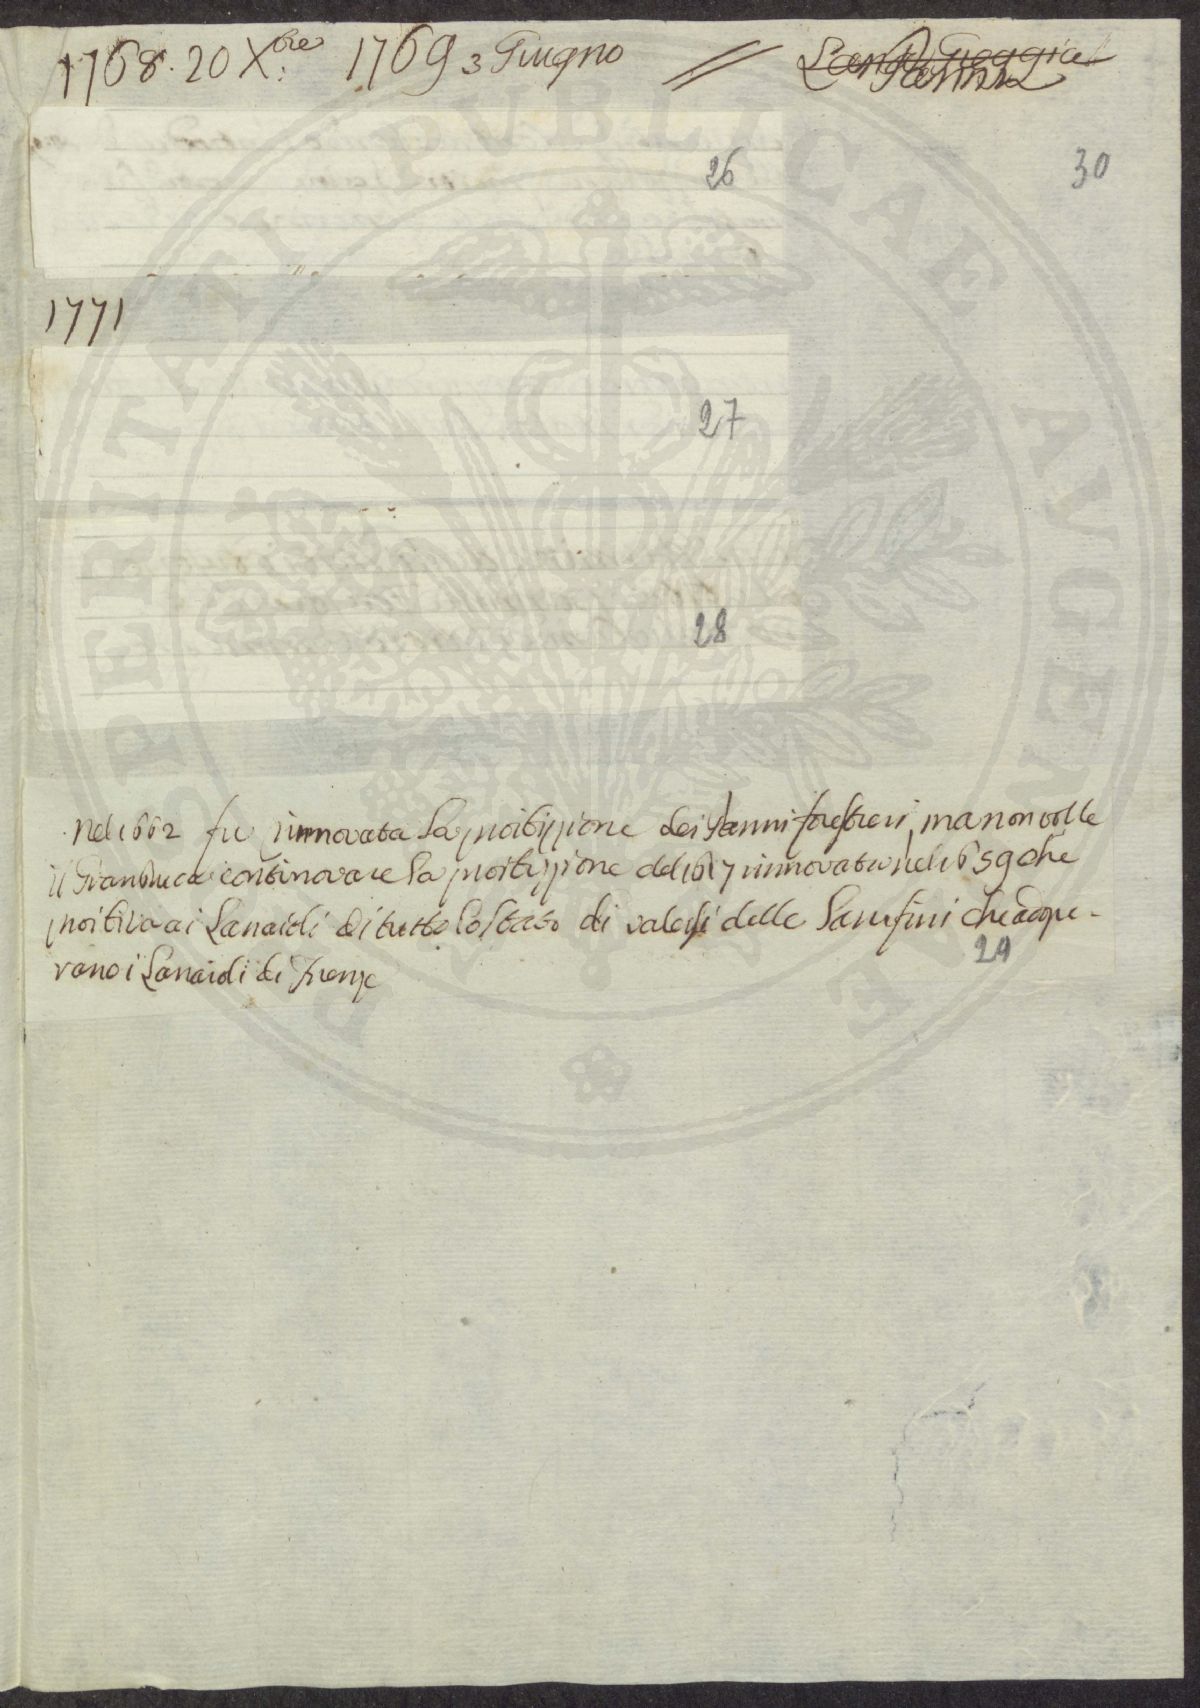 1768. 20 Xbre 1769 3 Giugno //
Panni
26
30
1771
27
28
Nel 1662 fu rinnovata la proibizione dei Panni forestieri, ma non volle
il Granduca continovare la proibizione del 1617 rinnovata nel 1659 che
proibiva ai Lanaioli di tutto lo stato di valersi delle Lane fini che adope-
29
rano i Lanaioli di Firenze
PROSPERITATI PVBLICAE AVGENDAE